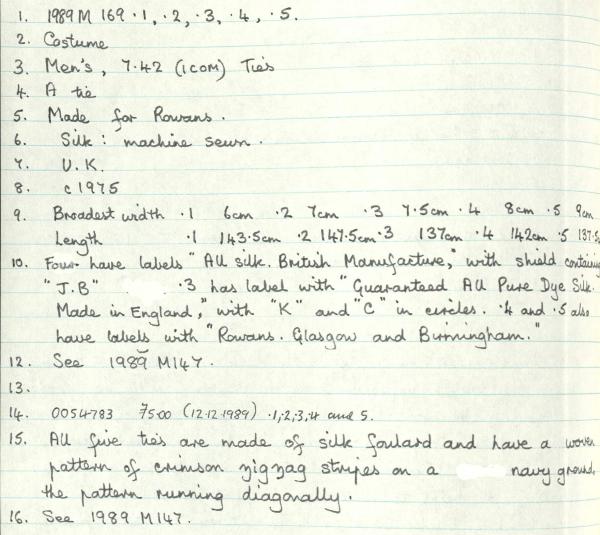 1. 1989 M 169 .1, .2, .3, .4, .5.
2. Costume
3. Men's, 7.42 (ICOM) Ties
4. A tie
5. Made for Rowans.
6. Silk: machine sewn.
7. U.K.
8. c 1975
9. Broadest width .1 6cm .2 7cm .3 7.5cm .4 8cm .5 9cm
Length .1 143.5cm .2 147.5cm .3 137cm .4 142cm .5 137.5
10. Four have labels "All silk. British Manufacture," with shield containing
"J.B" .3 has label with "Guaranteed All Pure Dye Silk.
Made in England," with "K" and "C" in circles. .4 and .5 also
have labels with "Rowans. Glasgow and Birmingham."
12. See 1989 M147.
13.
14. 0054783 75.00 (12.12.1989) .1,.2,.3,.4 and 5.
15. All five ties are made of silk foulard and have a woven
pattern of crimson zigzag stripes on a navy ground,
the pattern running diagonally.
16. See 1989 M147.